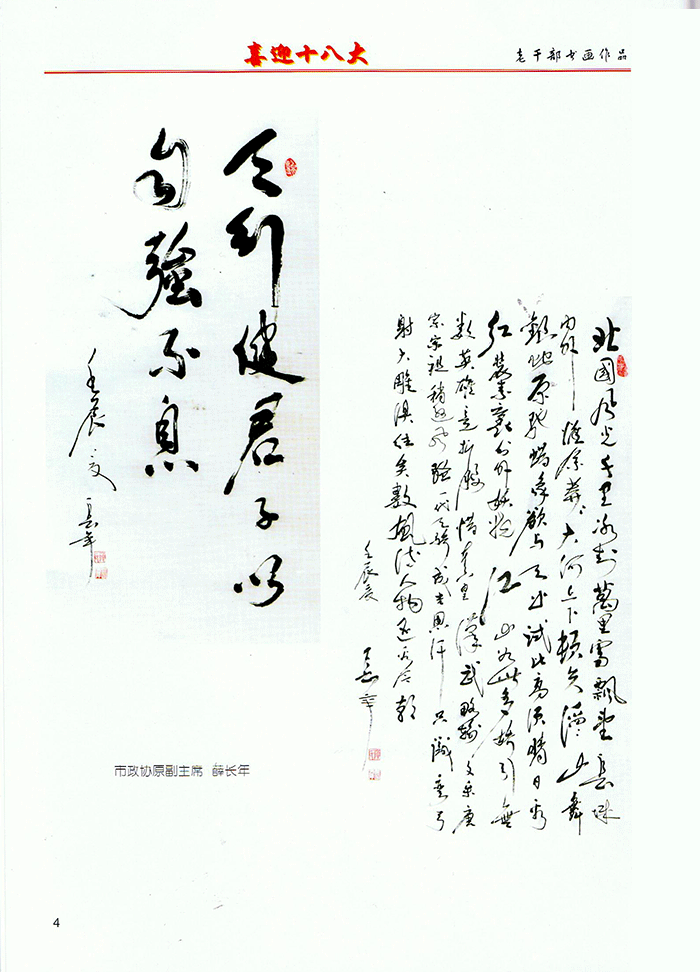 喜迎十八大
老干部书画作品
天行健君子以
自强不息
壬辰夏 长年
北国风光千里冰封萬里雪飘望长城
内外惟余莽大河上下顿失滔山舞
银蛇原驰蜡象欲与天公试比高须晴日看
红装素裹分外妖娆江山如此多娇引無
数英雄竞折腰惜秦皇漢武略输文采唐
宗宋祖稍逊风骚一代天骄成吉思汗只識弯弓
射大雕俱往矣数風流人物还看今朝
壬辰夏
市政协原副主席 薛长年
4